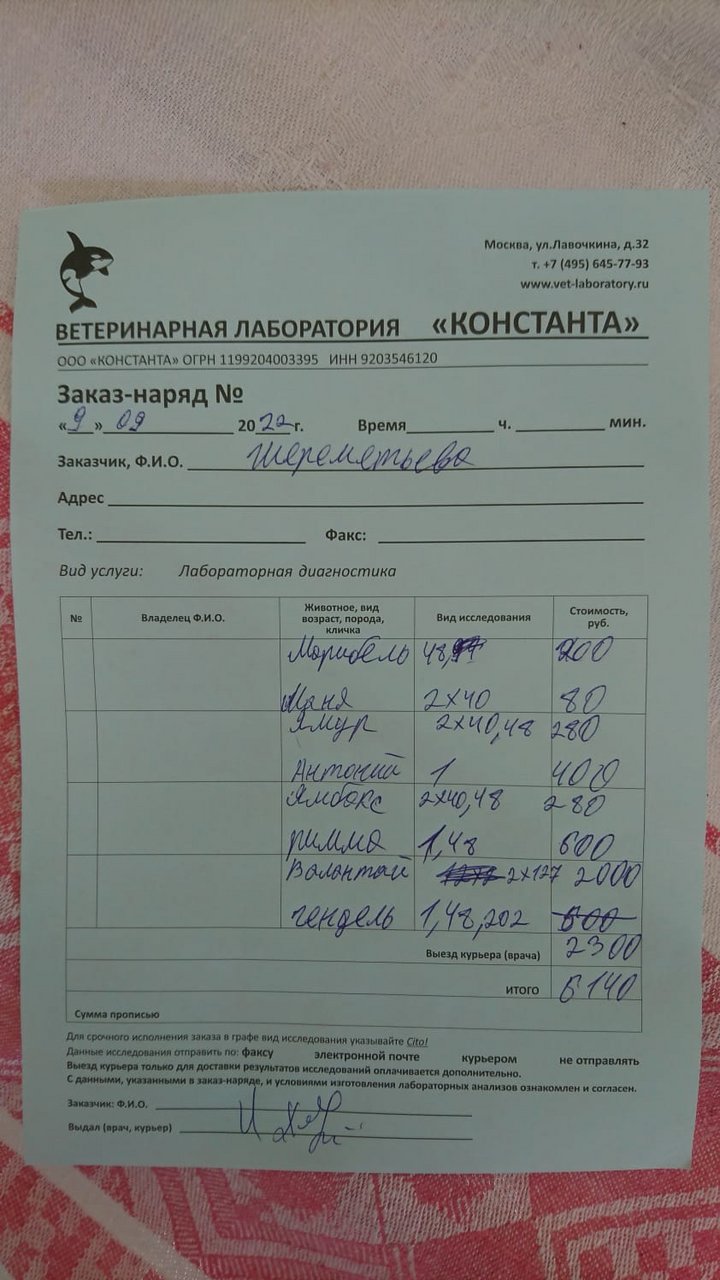 Москва, ул.Лавочкина, д.32
т. +7 (495) 645-77-93
www.vet-laboratory.ru
ВЕТЕРИНАРНАЯ ЛАБОРАТОРИЯ «КОНСТАНТА»
ООО «КОНСТАНТА» ОГРН 1199204003395 ИНН 9203546120
Заказ-наряд №
«9» 09 2022г. Время ч. мин.
Заказчик, Ф.И.О. Шереметьева
Адрес
Тел.: Факс:
Вид услуги: Лабораторная диагностика
№ Владелец Ф.И.О. Животное, вид возраст, порода, кличка Вид исследования Стоимость, руб.
Марибель 48, 200
Маня 2х40 80
Ямур 2х40,48 280
Антоний 1 400
Ямбокс 2х40,48 280
Римма 1,48 600
Валантай 2х127 2000
Гендель 1,48,202 600
Выезд курьера (врача) 2300
ИТОГО 6140
Сумма прописью
Для срочного исполнения заказа в графе вид исследования указывайте Cito!
Данные исследования отправить по: факсу электронной почте курьером не отправлять
Выезд курьера только для доставки результатов исследований оплачивается дополнительно.
С данными, указанными в заказ-наряде, и условиями изготовления лабораторных анализов ознакомлен и согласен.
Заказчик: Ф.И.О.
Выдал (врач, курьер)